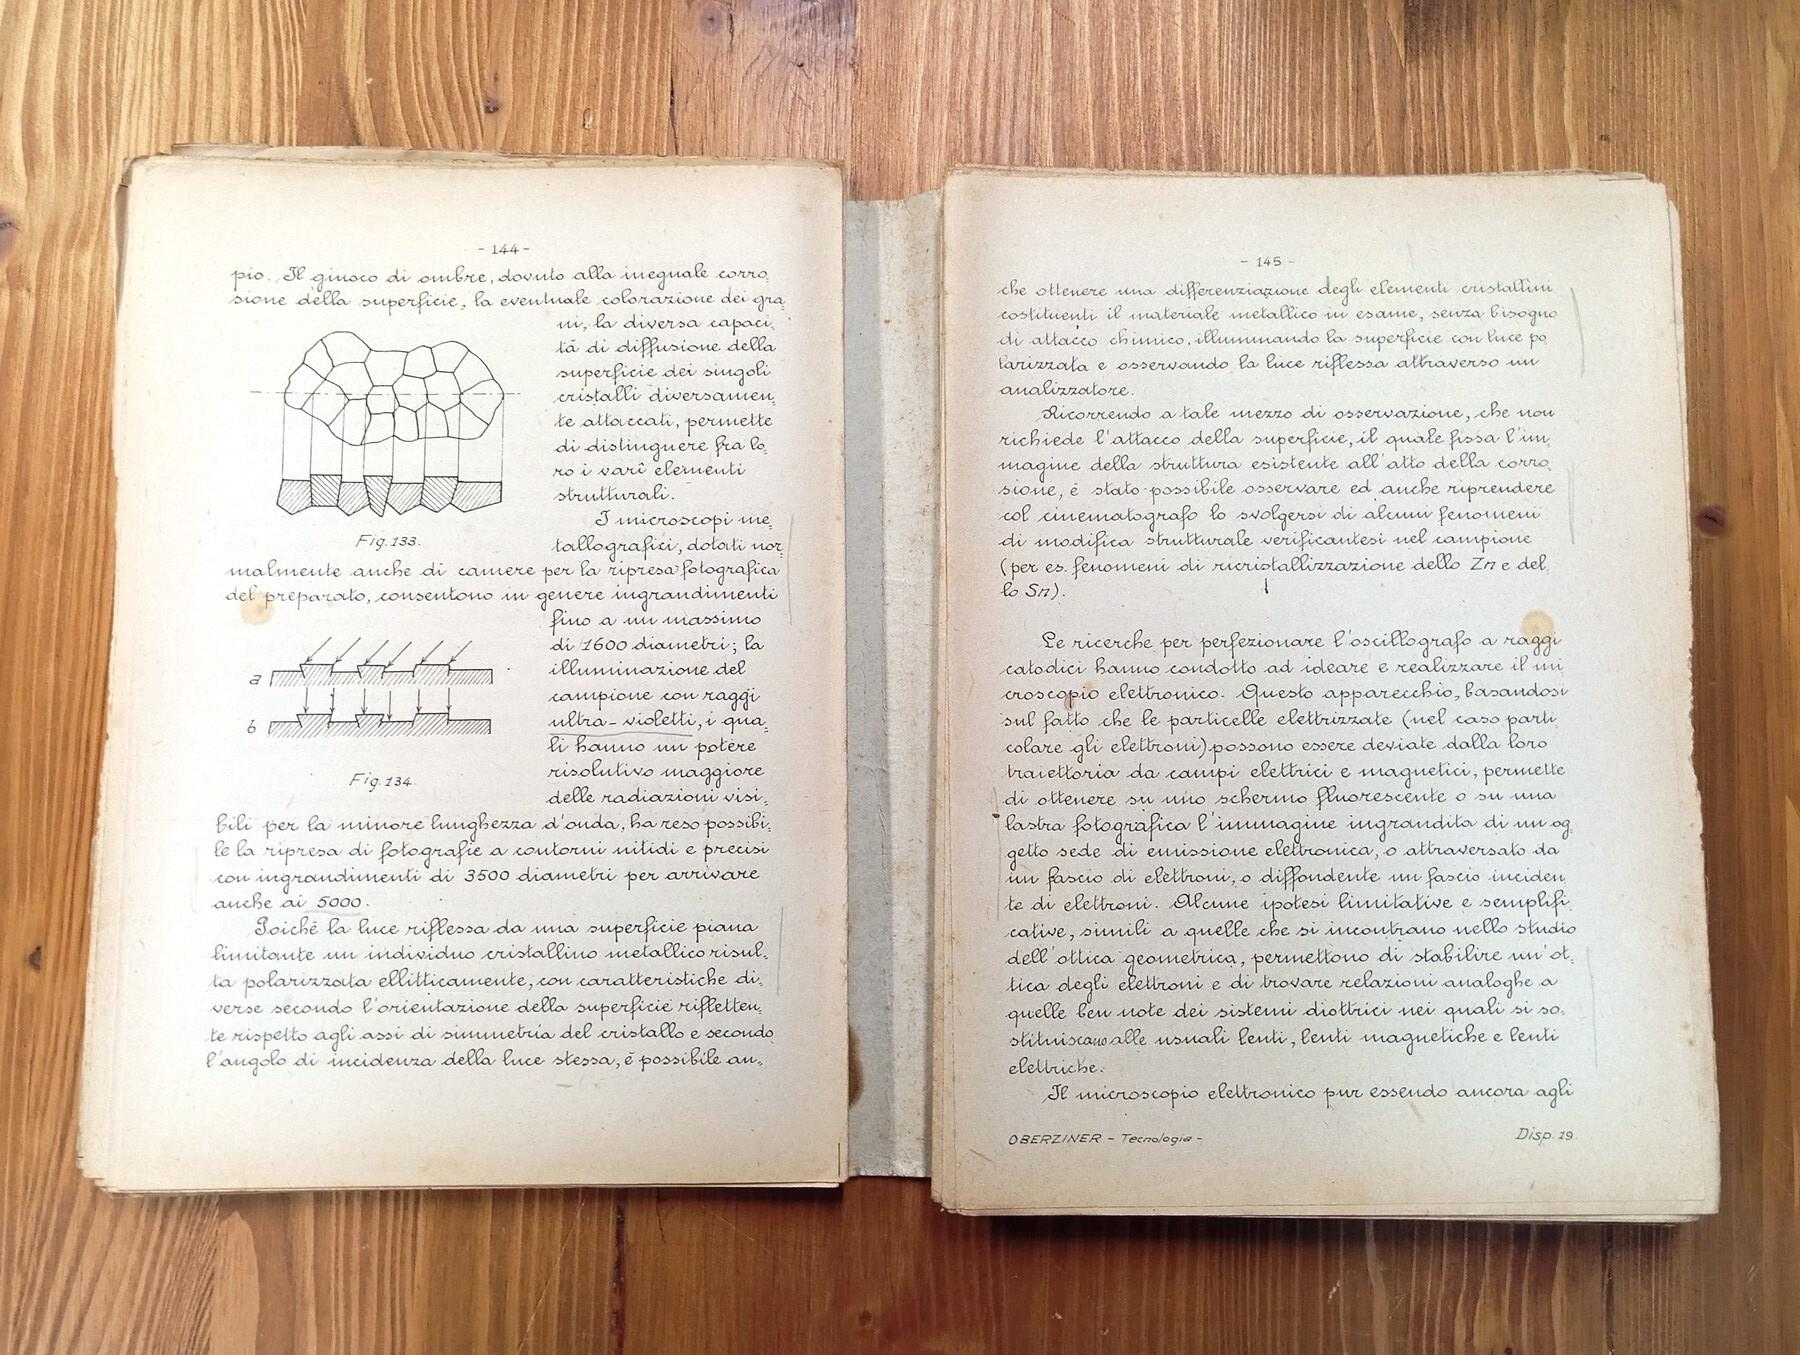 - 144 -
pio. Il giuoco di ombre, dovuto alla ineguale corro₌
sione della superficie, la eventuale colorazione dei gra₌
ni, la diversa capaci₌
tà di diffusione della
superficie dei singoli
cristalli diversamen₌
te attaccati, permette
di distinguere fra lo₌
ro i varî elementi
strutturali.
Fig. 133.
I microscopi me₌
tallografici, dotati nor₌
malmente anche di camere per la ripresa fotografica
del preparato, consentono in genere ingrandimenti
fino a un massimo
di 1600 diametri; la
illuminazione del
campione con raggi
ultra-violetti, i qua₌
li hanno un potere
risolutivo maggiore
delle radiazioni visi₌
a
b
Fig. 134.
bili per la minore lunghezza d'onda, ha reso possibi₌
le la ripresa di fotografie a contorni nitidi e precisi
con ingrandimenti di 3500 diametri per arrivare
anche ai 5000.
Poiché la luce riflessa da una superficie piana
limitante un individuo cristallino metallico risul₌
ta polarizzata ellitticamente, con caratteristiche di₌
verse secondo l'orientazione della superficie rifletten₌
te rispetto agli assi di simmetria del cristallo e secondo
l'angolo di incidenza della luce stessa, è possibile an₌
- 145 -
che ottenere una differenziazione degli elementi cristallini
costituenti il materiale metallico in esame, senza bisogno
di attacco chimico, illuminando la superficie con luce po₌
larizzata e osservando la luce riflessa attraverso un
analizzatore.
Ricorrendo a tale mezzo di osservazione, che non
richiede l'attacco della superficie, il quale fissa l'im₌
magine della struttura esistente all'atto della corro₌
sione, è stato possibile osservare ed anche riprendere
col cinematografo lo svolgersi di alcuni fenomeni
di modifica strutturale verificantesi nel campione
(per es. fenomeni di ricristallizzazione dello Zn e del₌
lo Sn).
Le ricerche per perfezionare l'oscillografo a raggi
catodici hanno condotto ad ideare e realizzare il mi₌
croscopio elettronico. Questo apparecchio, basandosi
sul fatto che le particelle elettrizzate (nel caso parti₌
colare gli elettroni) possono essere deviate dalla loro
traiettoria da campi elettrici e magnetici, permette
di ottenere su uno schermo fluorescente o su una
lastra fotografica l'immagine ingrandita di un og₌
getto sede di emissione elettronica, o attraversato da
un fascio di elettroni, o diffondente un fascio inciden₌
te di elettroni. Alcune ipotesi limitative e semplifi₌
cative, simili a quelle che si incontrano nello studio
dell'ottica geometrica, permettono di stabilire un'ot₌
tica degli elettroni e di trovare relazioni analoghe a
quelle ben note dei sistemi diottrici nei quali si so₌
stituiscano alle usuali lenti, lenti magnetiche e lenti
elettriche.
Il microscopio elettronico pur essendo ancora agli
OBERZINER - Tecnologia - Disp. 19